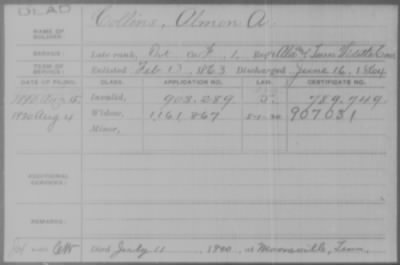 DEAD
NAME OF SOLDIER: Collins, Almon A.
SERVICE: Late rank, Pvt Co. F, 1, Reg't Ala & Tenn Vidette Cav
TERM OF SERVICE: Enlisted Feb 1863 Discharged June 16, 1864
DATE OF FILING. CLASS. APPLICATION NO. LAW. CERTIFICATE NO.
1890 Aug 15 Invalid, 903.289 789.749
1900 Aug 4 Widow, 1,161.867 907031
Minor,
ADDITIONAL SERVICES:
REMARKS:
Died July 11, 1900, at Tenn